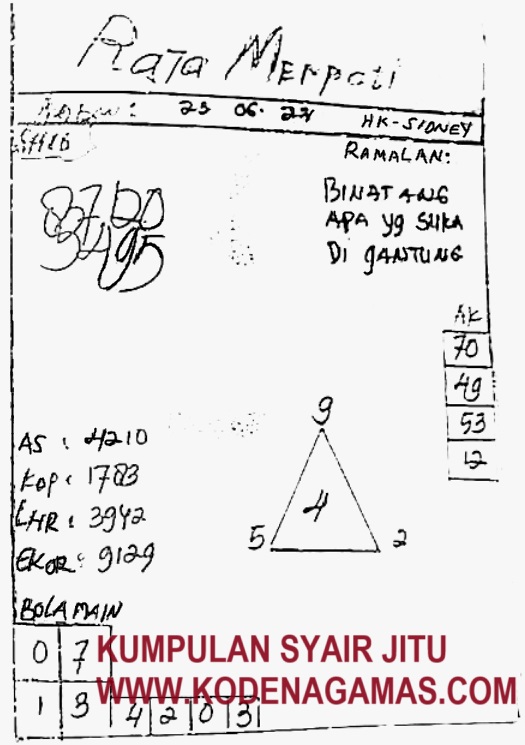 Raja Merpati
23 06. 22
HK-SIDNEY
RAMALAN:
BINATANG
APA yg SUKA
Di gANTUNG
8712D
3495
AK
70
49
53
12
9
4
5 2
AS : 4210
KOP : 1783
LHR : 3942
EKOR : 9129
BOLA MAIN
0 7
1 3 4 2 0 3
KUMPULAN SYAIR JITU
WWW.KODENAGAMAS.COM